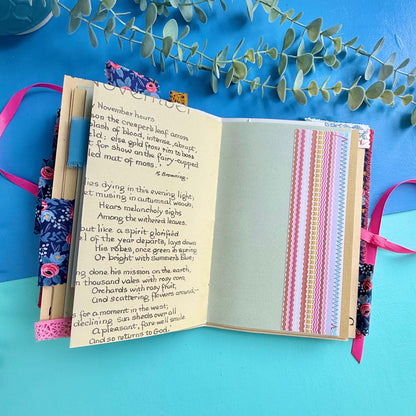 November
November
November hours
on the creeper's leaf across
splash of blood, intense, abrupt,
ld: else gold from rim to boss
t for show on the fairy-cupped
led mat of moss,
R. Browning.
es dying in this evening light;
et musing in autumnal woods,
Hears melancholy sighs
Among the withered leaves.
but like a spirit glorified
l of the year departs, lays down
His robes, once green in spring
Or bright with summer's blue;
ng done his mission on the earth,
n thousand vales with rosy corn,
Orchards with rosy fruit,
And scattering flowers around—
s for a moment in the west;
declining sun sheds over all
A pleasant, farewell smile
And so returns to God.